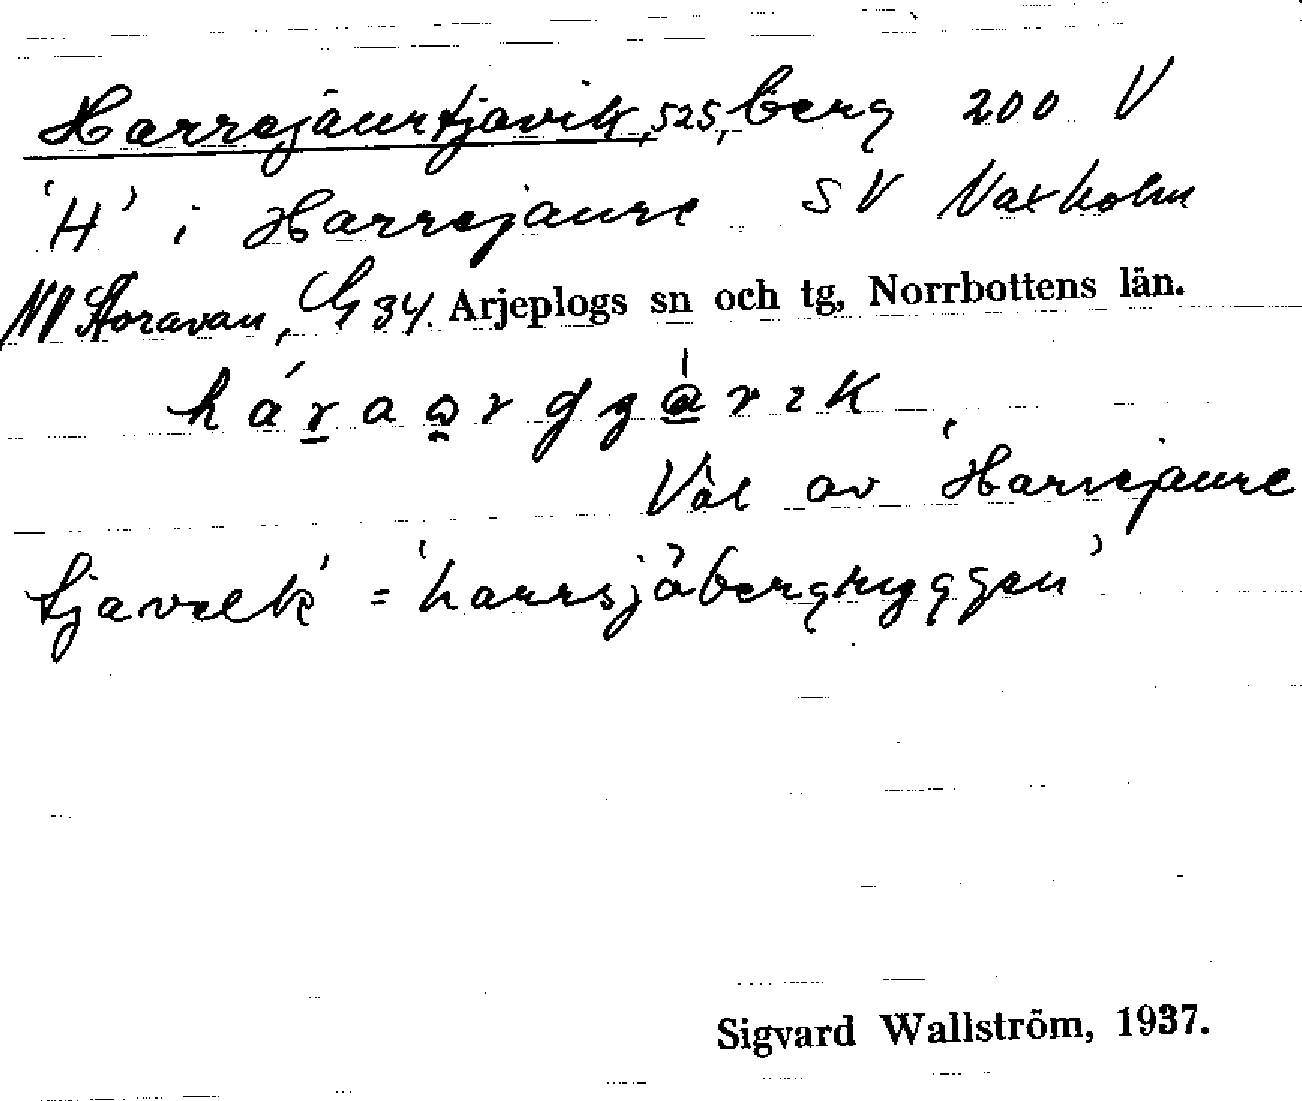 Harrejaurtjavik, 525, berg 200 V
'H' i Harrejaure SV Vaxholm
NV Storavan, G 34. Arjeplogs sn och tg, Norrbottens län.
Väl av 'Harrejaure
tjavelk' = 'harrsjöbergryggen'
Sigvard Wallström, 1937.